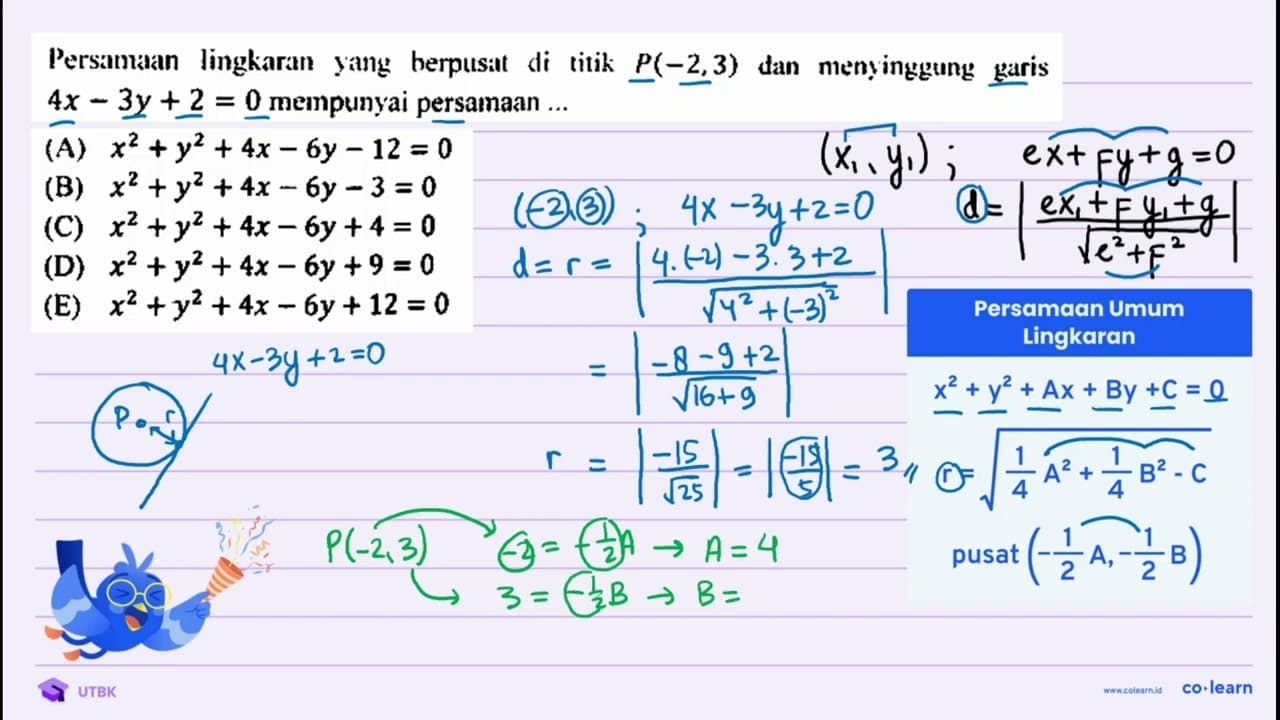 Persamaan lingkaran yang berpusat di titik P(−2,3) dan menyinggung garis
4x − 3y + 2 = 0 mempunyai persamaan ...
(A) x² + y² + 4x − 6y − 12 = 0
(B) x² + y² + 4x − 6y − 3 = 0
(C) x² + y² + 4x − 6y + 4 = 0
(D) x² + y² + 4x − 6y + 9 = 0
(E) x² + y² + 4x − 6y + 12 = 0
(x₁, y₁) ; ex + Fy + g = 0
d = | ex₁ + F y₁ + g / √e² + F² |
(−2, 3) ; 4x − 3y + 2 = 0
d = r = | 4.(−2) − 3.3 + 2 / √4² + (−3)² |
= | −8 − 9 + 2 / √16 + 9 |
r = | −15 / √25 | = | −15 / 5 | = 3 //
4x − 3y + 2 = 0
P r
P(−2, 3) −2 = −1/2 A → A = 4
3 = −1/2 B → B =
Persamaan Umum
Lingkaran
x² + y² + Ax + By + C = 0
r = √1/4 A² + 1/4 B² - C
pusat (−1/2 A, −1/2 B)
UTBK
www.colearn.id co·learn